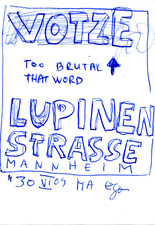 VOTZE
TOO BRUTAL
THAT WORD
LUPINEN
STRASSE
MANNHEIM
30 VI 09 MA